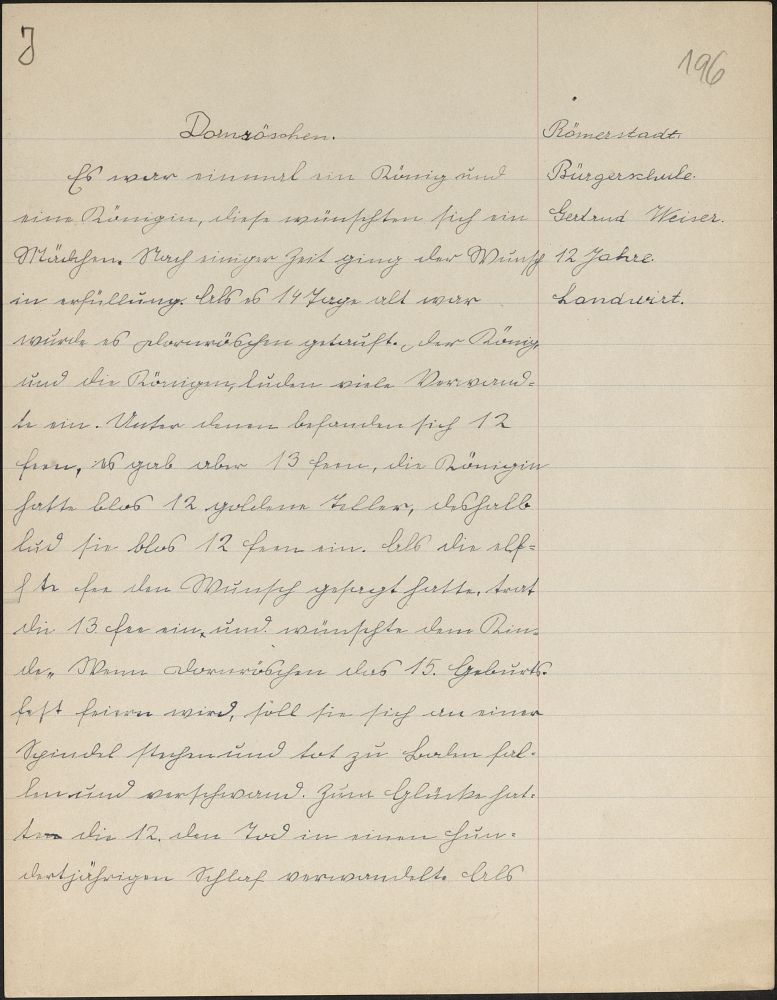 J
196
Dornröschen.
Es war einmal ein König und
eine Königin, diese wünschten sich ein
Mädchen. Nach einiger Zeit ging der Wunsch
in erfüllung. Als es 14 Tage alt war
wurde es Dornröschen getauft. der König
und die Königen, luden viele Verwand=
te ein. Unter denen befanden sich 12
feen, es gab aber 13 feen, die Königin
hatte blos 12 goldene Teller, deshalb
lud sie blos 12 feen ein. Als die elf=
te fee den Wunsch gesagt hatte, trat
die 13. fee ein, und wünschte dem Kin=
de„ Wenn Dornröschen das 15. Geburts=
fest feiern wird, soll sie sich an einer
Spindel stechen und tot zu Boden fal=
len und verschwand. Zum Glücke hat=
te die 12. den Tod in einen hun=
dertjährigen Schlaf verwandelt. Als
Römerstadt.
Bürgerschule.
Gertrud Weiser.
12 Jahre.
Landwirt.